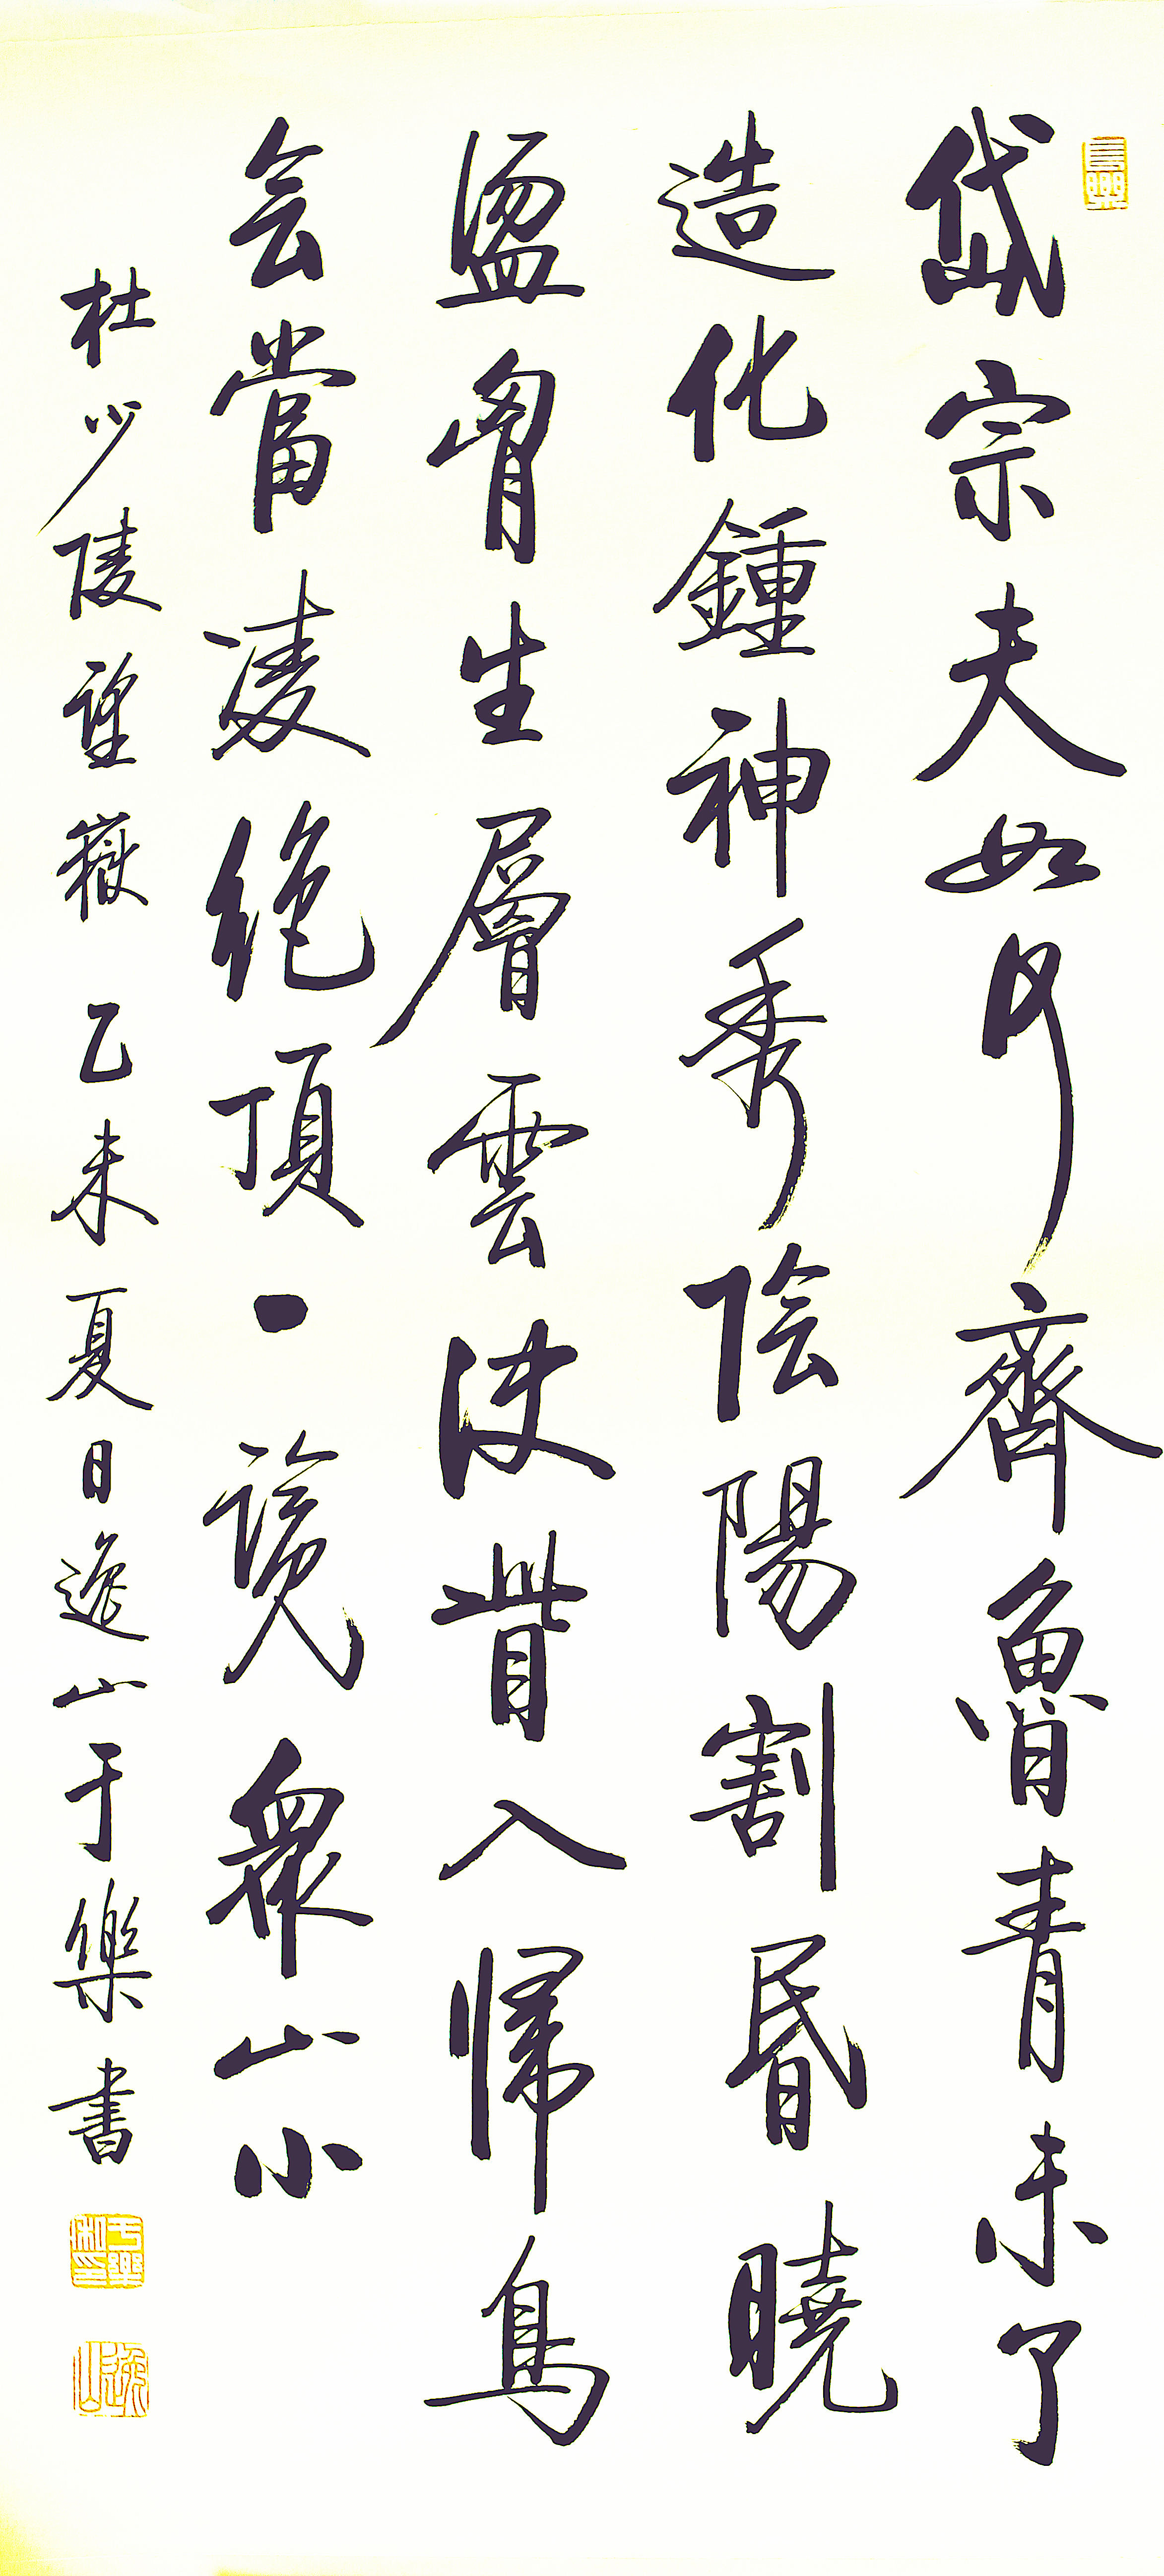 岱宗夫如何齊魯青未了
造化鍾神秀陰陽割昏曉
盪胷生層雲決眥入歸鳥
會當凌絕頂一覽衆山小
杜少陵望嶽 乙未夏日逸山于樂書